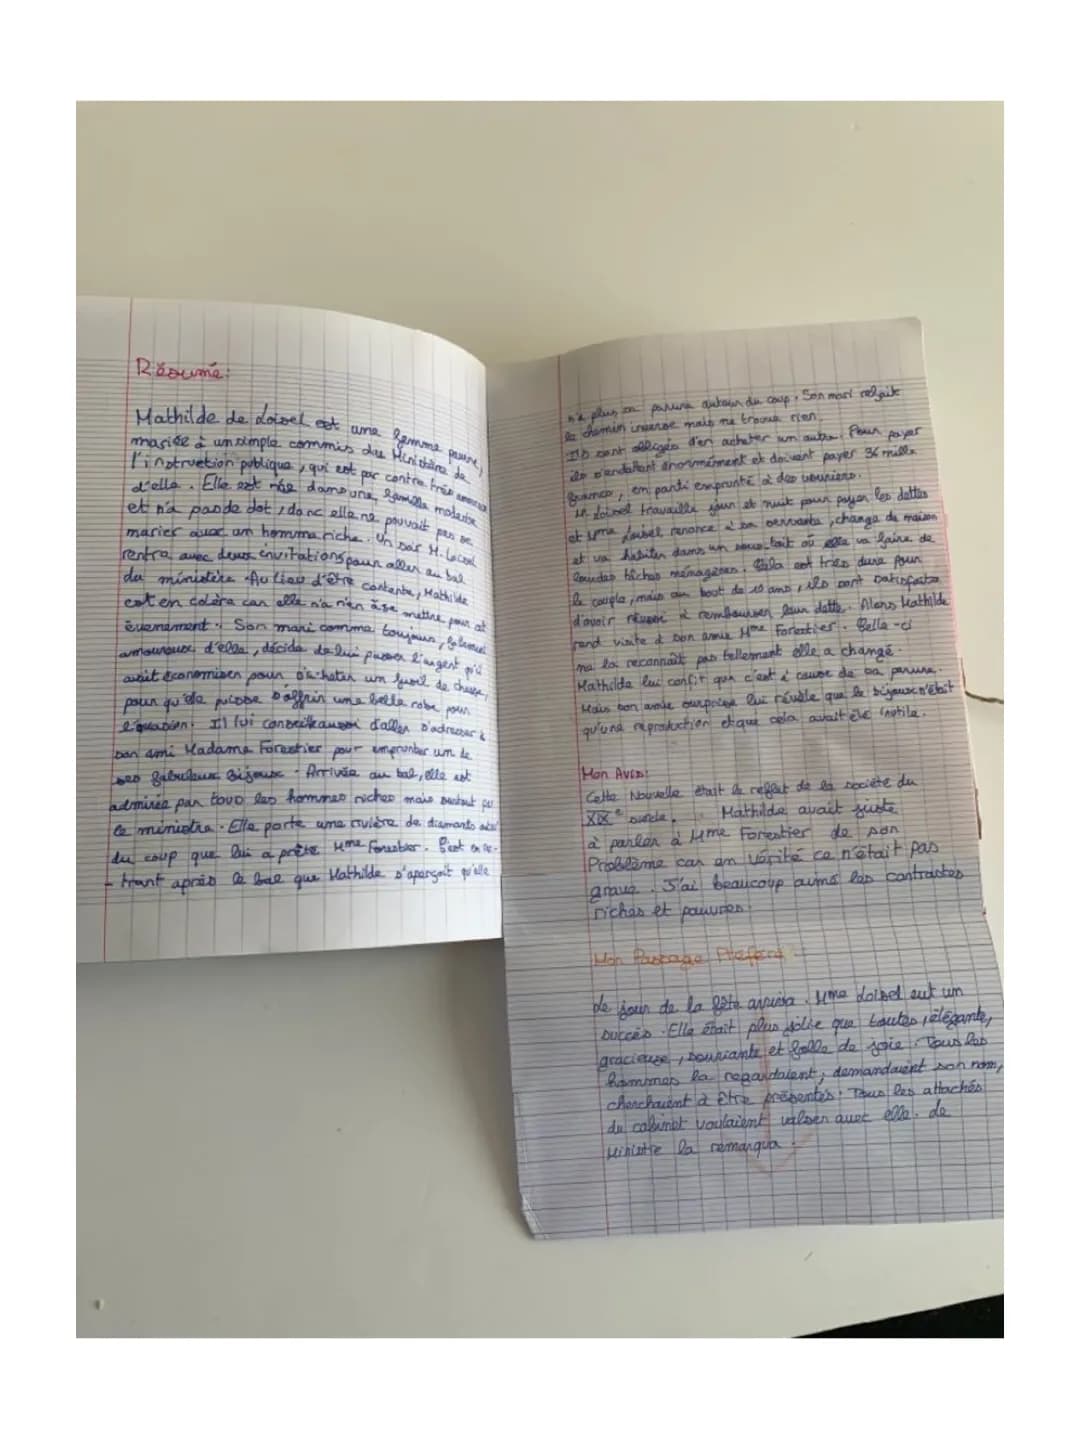 Résumé:
Mathilde de Loisel est une femme pauvre,
mariée à un simple commis du Ministère de
l'instruction publique, qui est par contre très amoureux
d'elle. Elle est née dans une famille modeste
et n'a pas de dot, donc elle ne pouvait pas se
marier avec un homme riche. Un soir M. Loisel
rentra avec deux invitations pour aller au bal
du ministère. Au lieu d'être contente, Mathilde
est en colère car elle n'a rien à se mettre pour cet
évenement. Son mari comme toujours, follement
amoureux d'elle, décida de lui passer l'argent qu'il
avait économiser pour s'acheter un fusil de chasse,
pour qu'elle puisse s'offrir une belle robe pour
l'occasion. Il lui conseille aussi d'aller s'adresser à
son ami Madame Forestier pour emprunter un de
ses fabuleux bijoux. Arrivée au bal, elle est
admirée par tous les hommes riches mais surtout par
le ministre. Elle porte une rivière de diamants autour
du coup que lui a prêté Mme Forestier. C'est en re-
-trant après le bal que Mathilde s'aperçoit qu'elle
n'a plus sa parure autour du coup. Son mari refait
le chemin inverse mais ne trouve rien.
Ils sont obligés d'en acheter un autre. Pour payer
ils s'endettent énormément et doivent payer 36 mille
francs, en parti emprunté à des usuriers.
M Loisel travaille jour et nuit pour payer les dettes
et Mme Loisel renonce à sa servante, change de maison
et va habiter dans un sous-toit où elle va faire de
lourdes tâches ménagères. Cela est très dure pour
le couple, mais au bout de 10 ans, ils sont satisfaits
d'avoir réussi à rembourser leur dette. Alors Mathilde
rend visite à son amie Mme Forestier. Celle-ci
ne la reconnaît pas tellement elle a changé.
Mathilde lui confit que c'est à cause de sa parure.
Mais son amie surprise lui révèle que le bijoux n'était
qu'une reproduction et que cela avait été inutile.
Mon Avis:
Cette Nouvelle était le reflet de la société du
XIXe siècle. Mathilde avait juste
à parler à Mme Forestier de son
Problème car en vérité ce n'était pas
grave. J'ai beaucoup aimé les contrastes
riches et pauvres.
Mon Passage Préféré:
Le jour de la fête arriva. Mme Loisel eut un
succès. Elle était plus jolie que toutes, élégante,
gracieuse, souriante et folle de joie. Tous les
hommes la regardaient, demandaient son nom,
cherchaient à être présentés. Tous les attachés
du cabinet voulaient valser avec elle. Le
Ministre la remarqua.